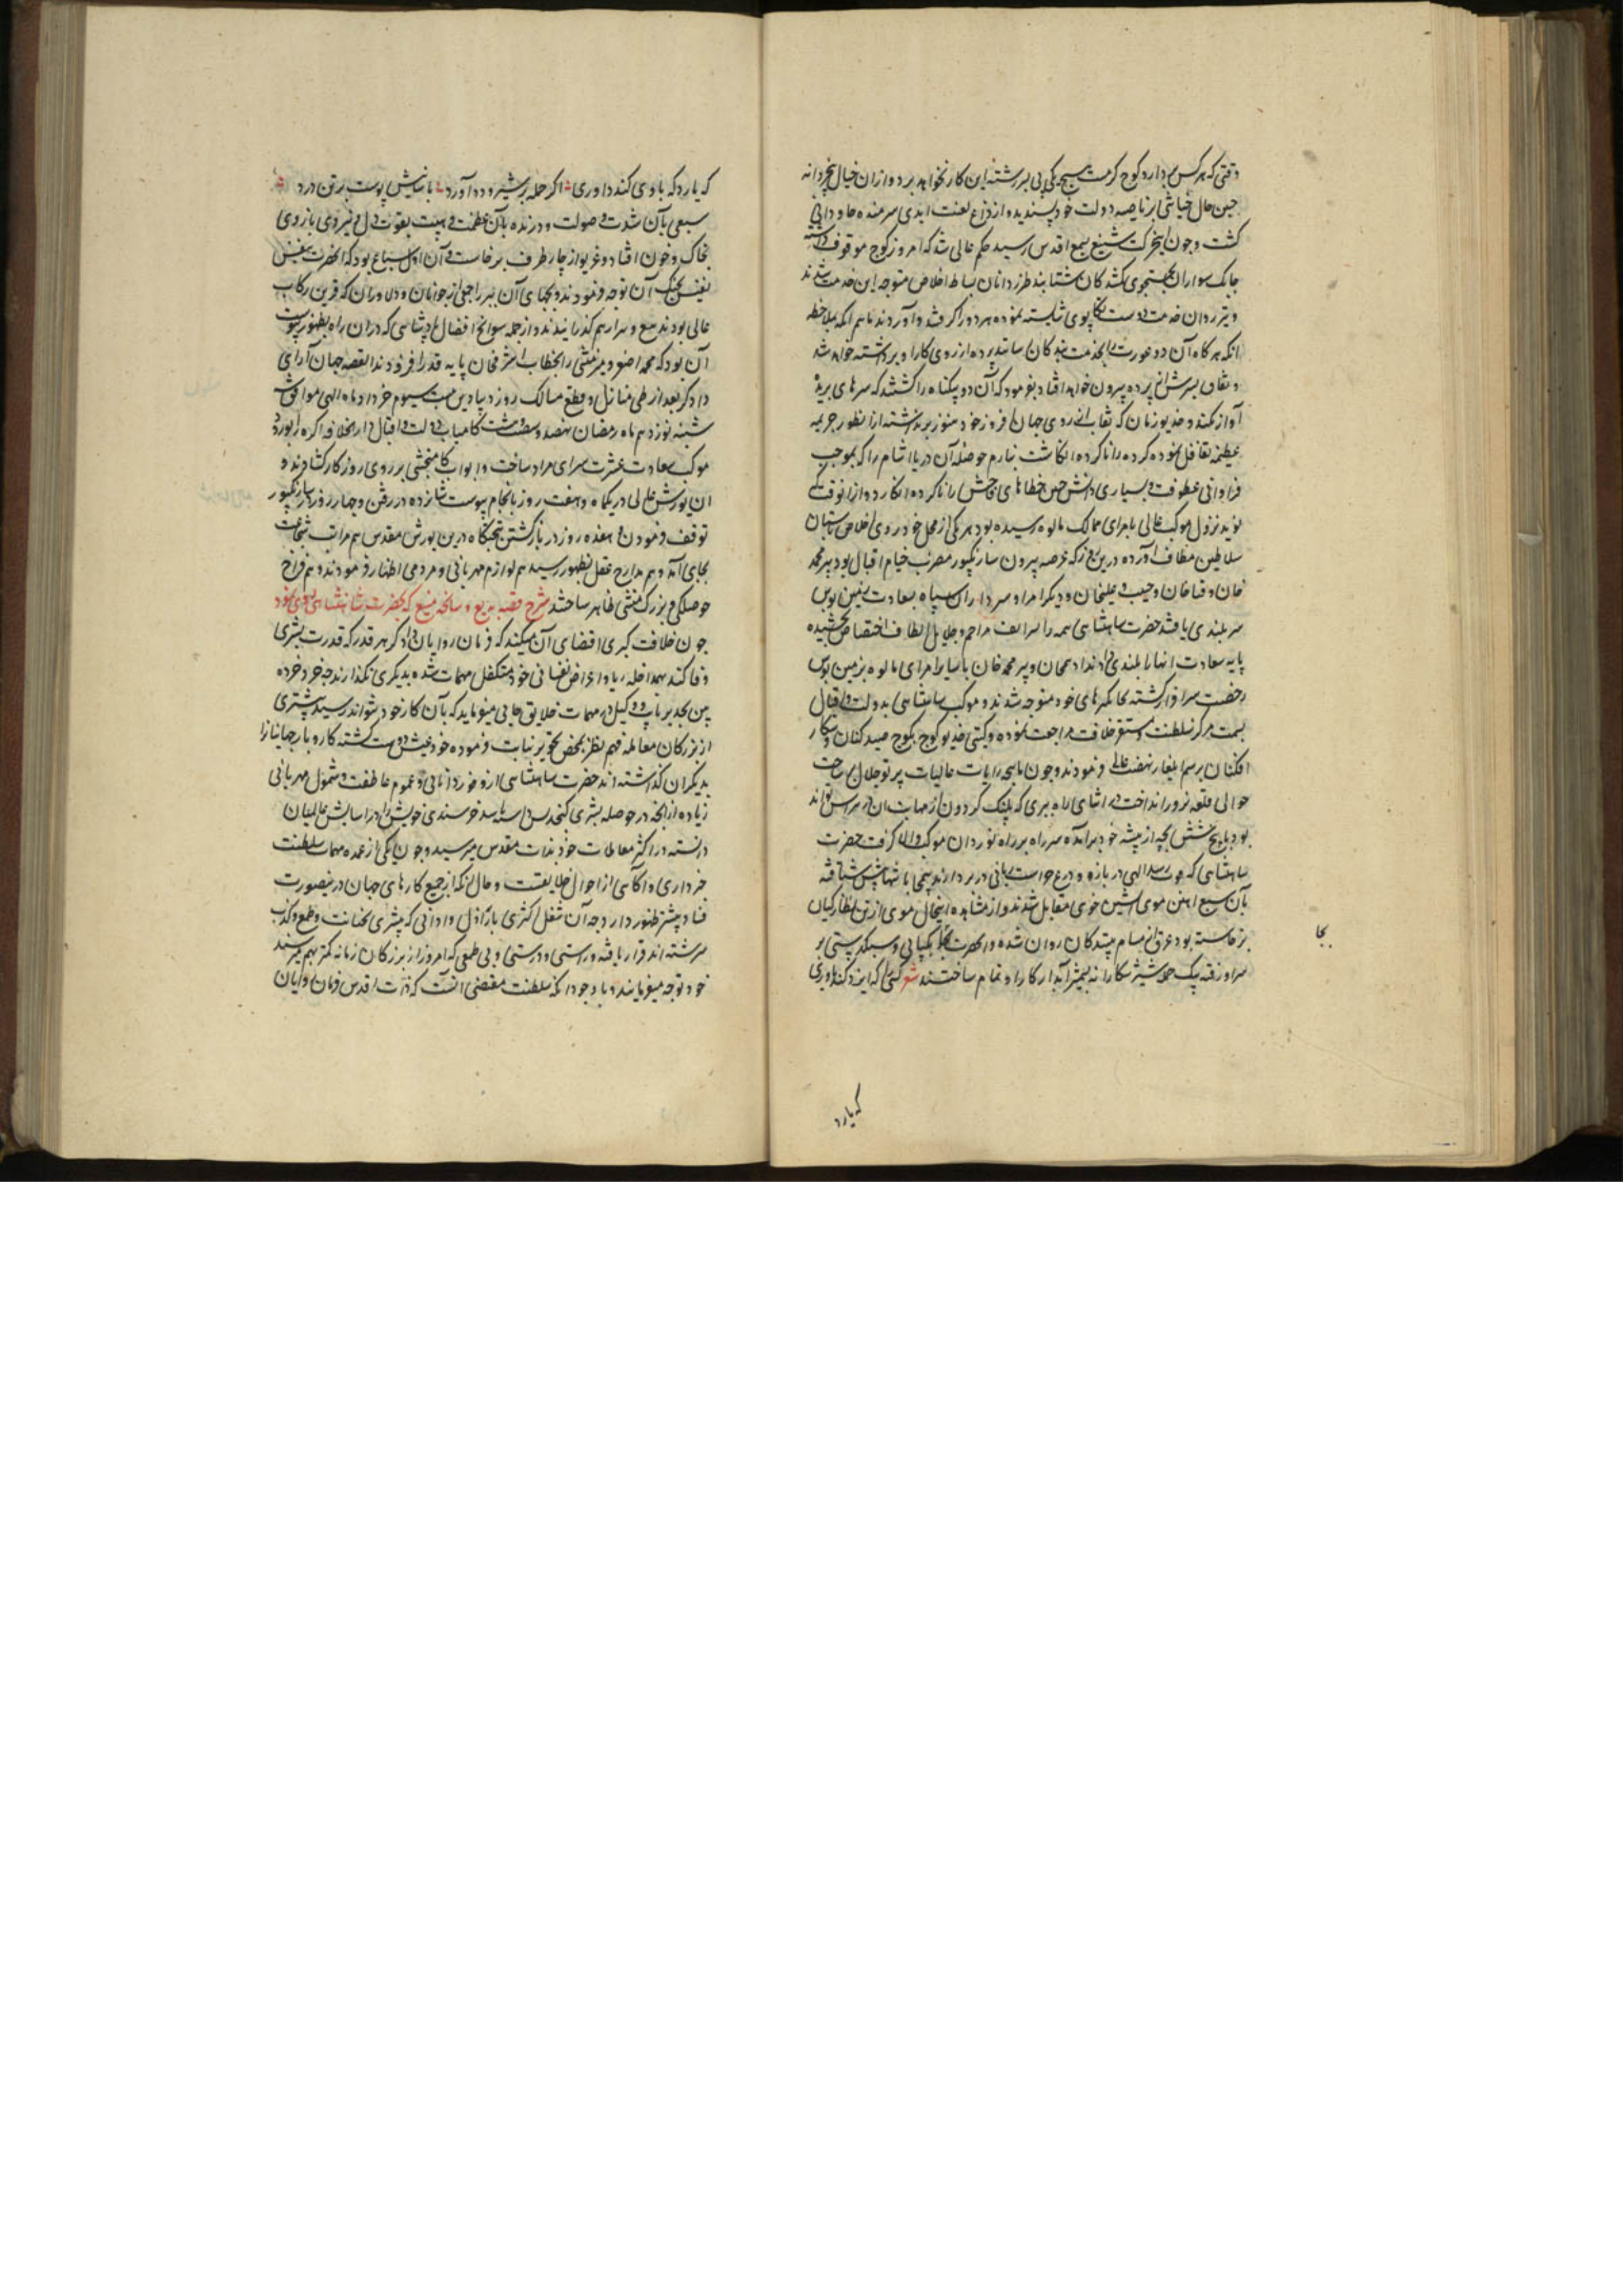 وقتی که هر کس دارد کوچ کر مست هیچ یکی پی بسررشته این کار نخواهد برد و ازان خیال بیخردانه
چنین حال خیانتی بر ناصیه دولت خود پسندیده و از داغ لعنت ابدی شرمنده جاودانی
گشت و چون این حرکت شنیع بسمع اقدس رسید حکم عالی شد که امروز کوچ موقوف داشته
چابک سواران بجستجوی گمشدگان بشتابند طرزدانان بساط اخلاص متوجه این خدمت شدند
و تیزروان خدمت دوست تکاپوی شایسته نموده هر دو را گرفته آوردند ماهم انکه بملاحظه
انکه هرگاه آن دو عورت بخدمت بندگان رسانند پرده از روی کار او برداشته خواهد شد
و نفاق پسرش از پرده بیرون خواهد افتاد بفرمود که آن دو بیگناه را کشتند که سرهای بریده
آواز نکند و خدیو زمان که نقاب از روی جهان افروز خود هنوز برنداشته از منظور جریمه
عظیمه تغافل نموده کرده را ناکرده انگاشت بنازم حوصله آن دریا آشام را که بموجب
فراوانی عطوفت و بسیاری دانش چنین خطاهای فاحش را ناکرده انگارد و از انوقت که
نوید نزول موکب عالی بامرای ممالک مالوه رسیده بود هر یکی از محل خود روی اخلاص باستان
سلاطین مطاف آورده درین روز که عرصه بیرون سارنگپور مضرب خیام اقبال بود پیر محمد
خان و قیاخان و حبیب علیخان و دیگر امرا و سرداران سپاه بسعادت زمین بوس
سربلندی یافتند حضرت شاهنشاهی همه را بشرایف مراحم و جلایل الطاف اختصاص بخشیده
پایه سعادت انها را بلندی دادند ادهم خان و پیر محمد خان با سایر امرای مالوه بزمین بوس
رخصت سرافراز گشته بجاگیرهای خود متوجه شدند و موکب شاهنشاهی بدولت و اقبال
بسمت مرکز سلطنت و مستقر خلافت مراجعت نموده و گیتی خدیو کوچ بکوچ صید کنان و شکار
افکنان برسم ایلغار نهضت عالی فرمودند و چون ماهچه رایات عالیات پرتو جلال بر ساحت
حوالی قلعه نرور انداخت در اثنای راه ببری که پلنگ گردون از مهابت آن در هراس تواند
بود با پنج شش بچه از بیشه خود برآمده سر راه بر راه نوردان موکب والا گرفت حضرت
شاهنشاهی که قوت اسد الهی در بازو و درع حراست ربانی در بر دارند بیمحابا تنها پیش شتافته
بآن سبع آهنین موی آتشین خوی مقابل شدند و از مشاهده اینحال موی از تن نظارگیان
برخاسته بود عرق از مسام بیننده گان روان شده و انحضرت بچابکپایی و سبکدستی بر
سر او رفته بیک شمشیر شکارانه بشمشیر آبدار کار او تمام ساختند شعر کسی را که ایزد کند یاوری
بجا
که یارد
که یارد که با وی کند داوری اگر حمله بر شیر و دد آورد با نیایش پوست بر تن درد
سبعی بآن شدت و صولت و درنده بآن عظمت و هیبت بقوت دل و نیروی بازوی
بخاک و خون افتاد و غریو از چار طرف برخاست و آن اول سباع بود که انحضرت بنفس
نفیس بجنگ آن توجه فرمودند و بچهای آن ببر را جمعی از جوانان و دلاوران که قرین رکاب
عالی بودند بتیغ و سر از هم گذرانیدند و از جمله سوانح افضال پادشاهی که دران راه بظهور پیوست
آن بود که محمد اصغر میر منشی را بخطاب اشرف خان پایه قدر افزودند القصه جهان آرای
دادگر بعد از طی منازل و قطع مسالک روز دیبادین بیست سیوم خرداد ماه الهی موافق
شنبه نوزدهم ماه رمضان نهصد و شصت و هشت کامیاب دولت و اقبال دارالخلافه اگره را بورود
موکب سعادت عشرت سرای مراد ساخت و ابواب کامبخشی بر روی روزگار گشادند و
این یورش عالی در یکماه و هفت روز بانجام پیوست شانزده در رفتن و چهار روز در سارنگپور
توقف فرمودن و هفده روز در بازگشتن بتختگاه درین یورش مقدس هم مراتب شجاعت
بجای آمد و هم مدارج عقل بظهور رسید هم لوازم مهربانی و مردمی اظهار فرمودند و هم فراخ
حوصلگی و بزرگ منشی ظاهر ساختند شرح قصه بدیع و سانحه منیع که حضرت شاهنشاهی روی نمود
چون خلافت کبری اقتضای آن میکند که فرمان روایان دادگر هر قدر که قدرت بشری
وفا کند بیمداخله ریا و اعراض نفسانی خود متکفل مهمات شده بدیگری نگذارند چه خرد خرده
بین تجویز باب وکیل در مهمات خلایق جایی مینماید که بآن کار خود نتواند رسید پیشتری
از بزرگان معامله فهم نظر بمحض تجویز نیابت فرموده خود عیش دوست گشته کاروبار جهانیان را
بدیگران گذاشته اند حضرت شاهنشاهی از وفور دانایی و عموم عاطفت و شمول مهربانی
زیاده از انچه در حوصله بشری گنجد بس دانسته خرسندی خویش را در آسایش عالمیان
دانسته در اکثر معاملات خود بذات مقدس میرسید و چون یکی از عمده مهمات سلطنت
خبرداری و آگاهی از احوال خلایقست و حال آنکه از جمیع کارهای جهان درینصورت
فساد بیشتر ظهور دارد چه آن شغل اکثری باراذل و ادانی که بیشتری بخیانت و طمع و کذب
سرشته اند قرار یافته و راستی و درستی و بی طمعی که امروز از بزرگان زمانه کمتر بهم میرسند
خود توجه میفرمایند و با وجود انکه سلطنت مقتضی آنست که ذات اقدس فرمان روایان